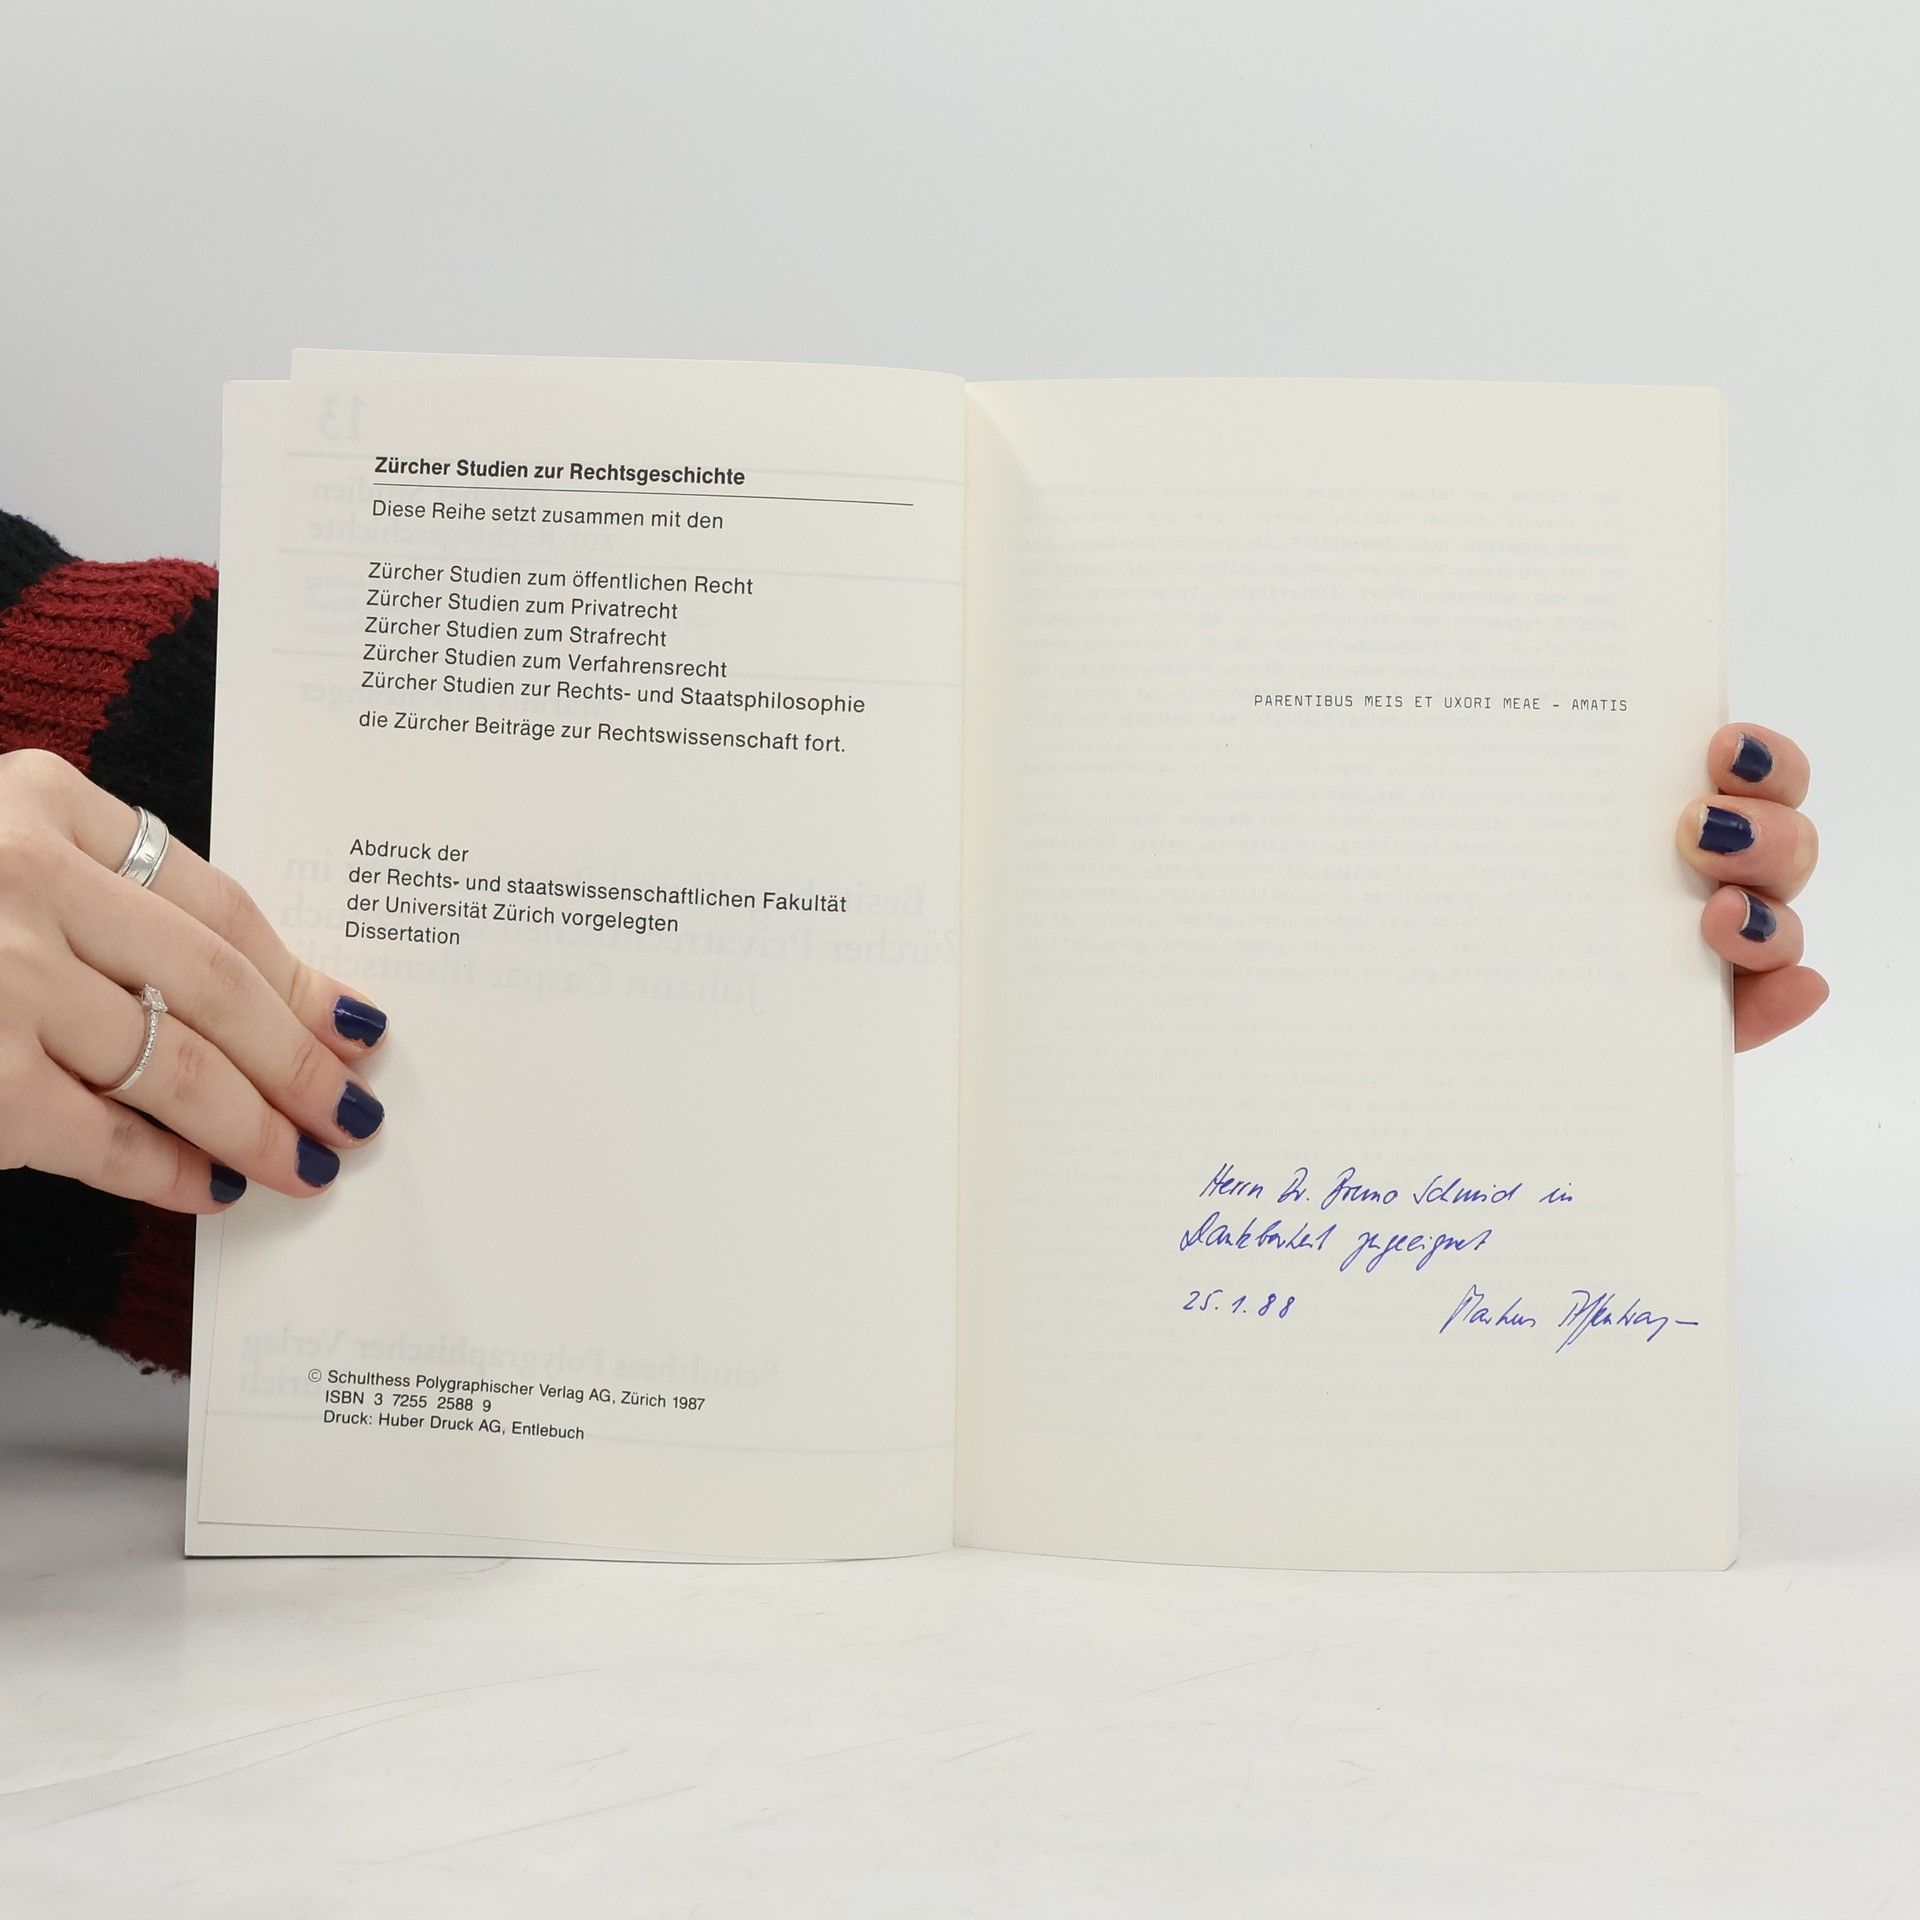 Zürcher Studien zur Rechtsgeschichte
Diese Reihe setzt zusammen mit den
Zürcher Studien zum öffentlichen Recht
Zürcher Studien zum Privatrecht
Zürcher Studien zum Strafrecht
Zürcher Studien zum Verfahrensrecht
Zürcher Studien zur Rechts- und Staatsphilosophie
die Zürcher Beiträge zur Rechtswissenschaft fort.
Abdruck der
der Rechts- und staatswissenschaftlichen Fakultät
der Universität Zürich vorgelegten
Dissertation
© Schulthess Polygraphischer Verlag AG, Zürich 1987
ISBN 3 7255 2588 9
Druck: Huber Druck AG, Entlebuch
PARENTIBUS MEIS ET UXORI MEAE - AMATIS
Herrn Dr. Bruno Schmid in
Dankbarkeit zugeeignet
25.1.88 Markus